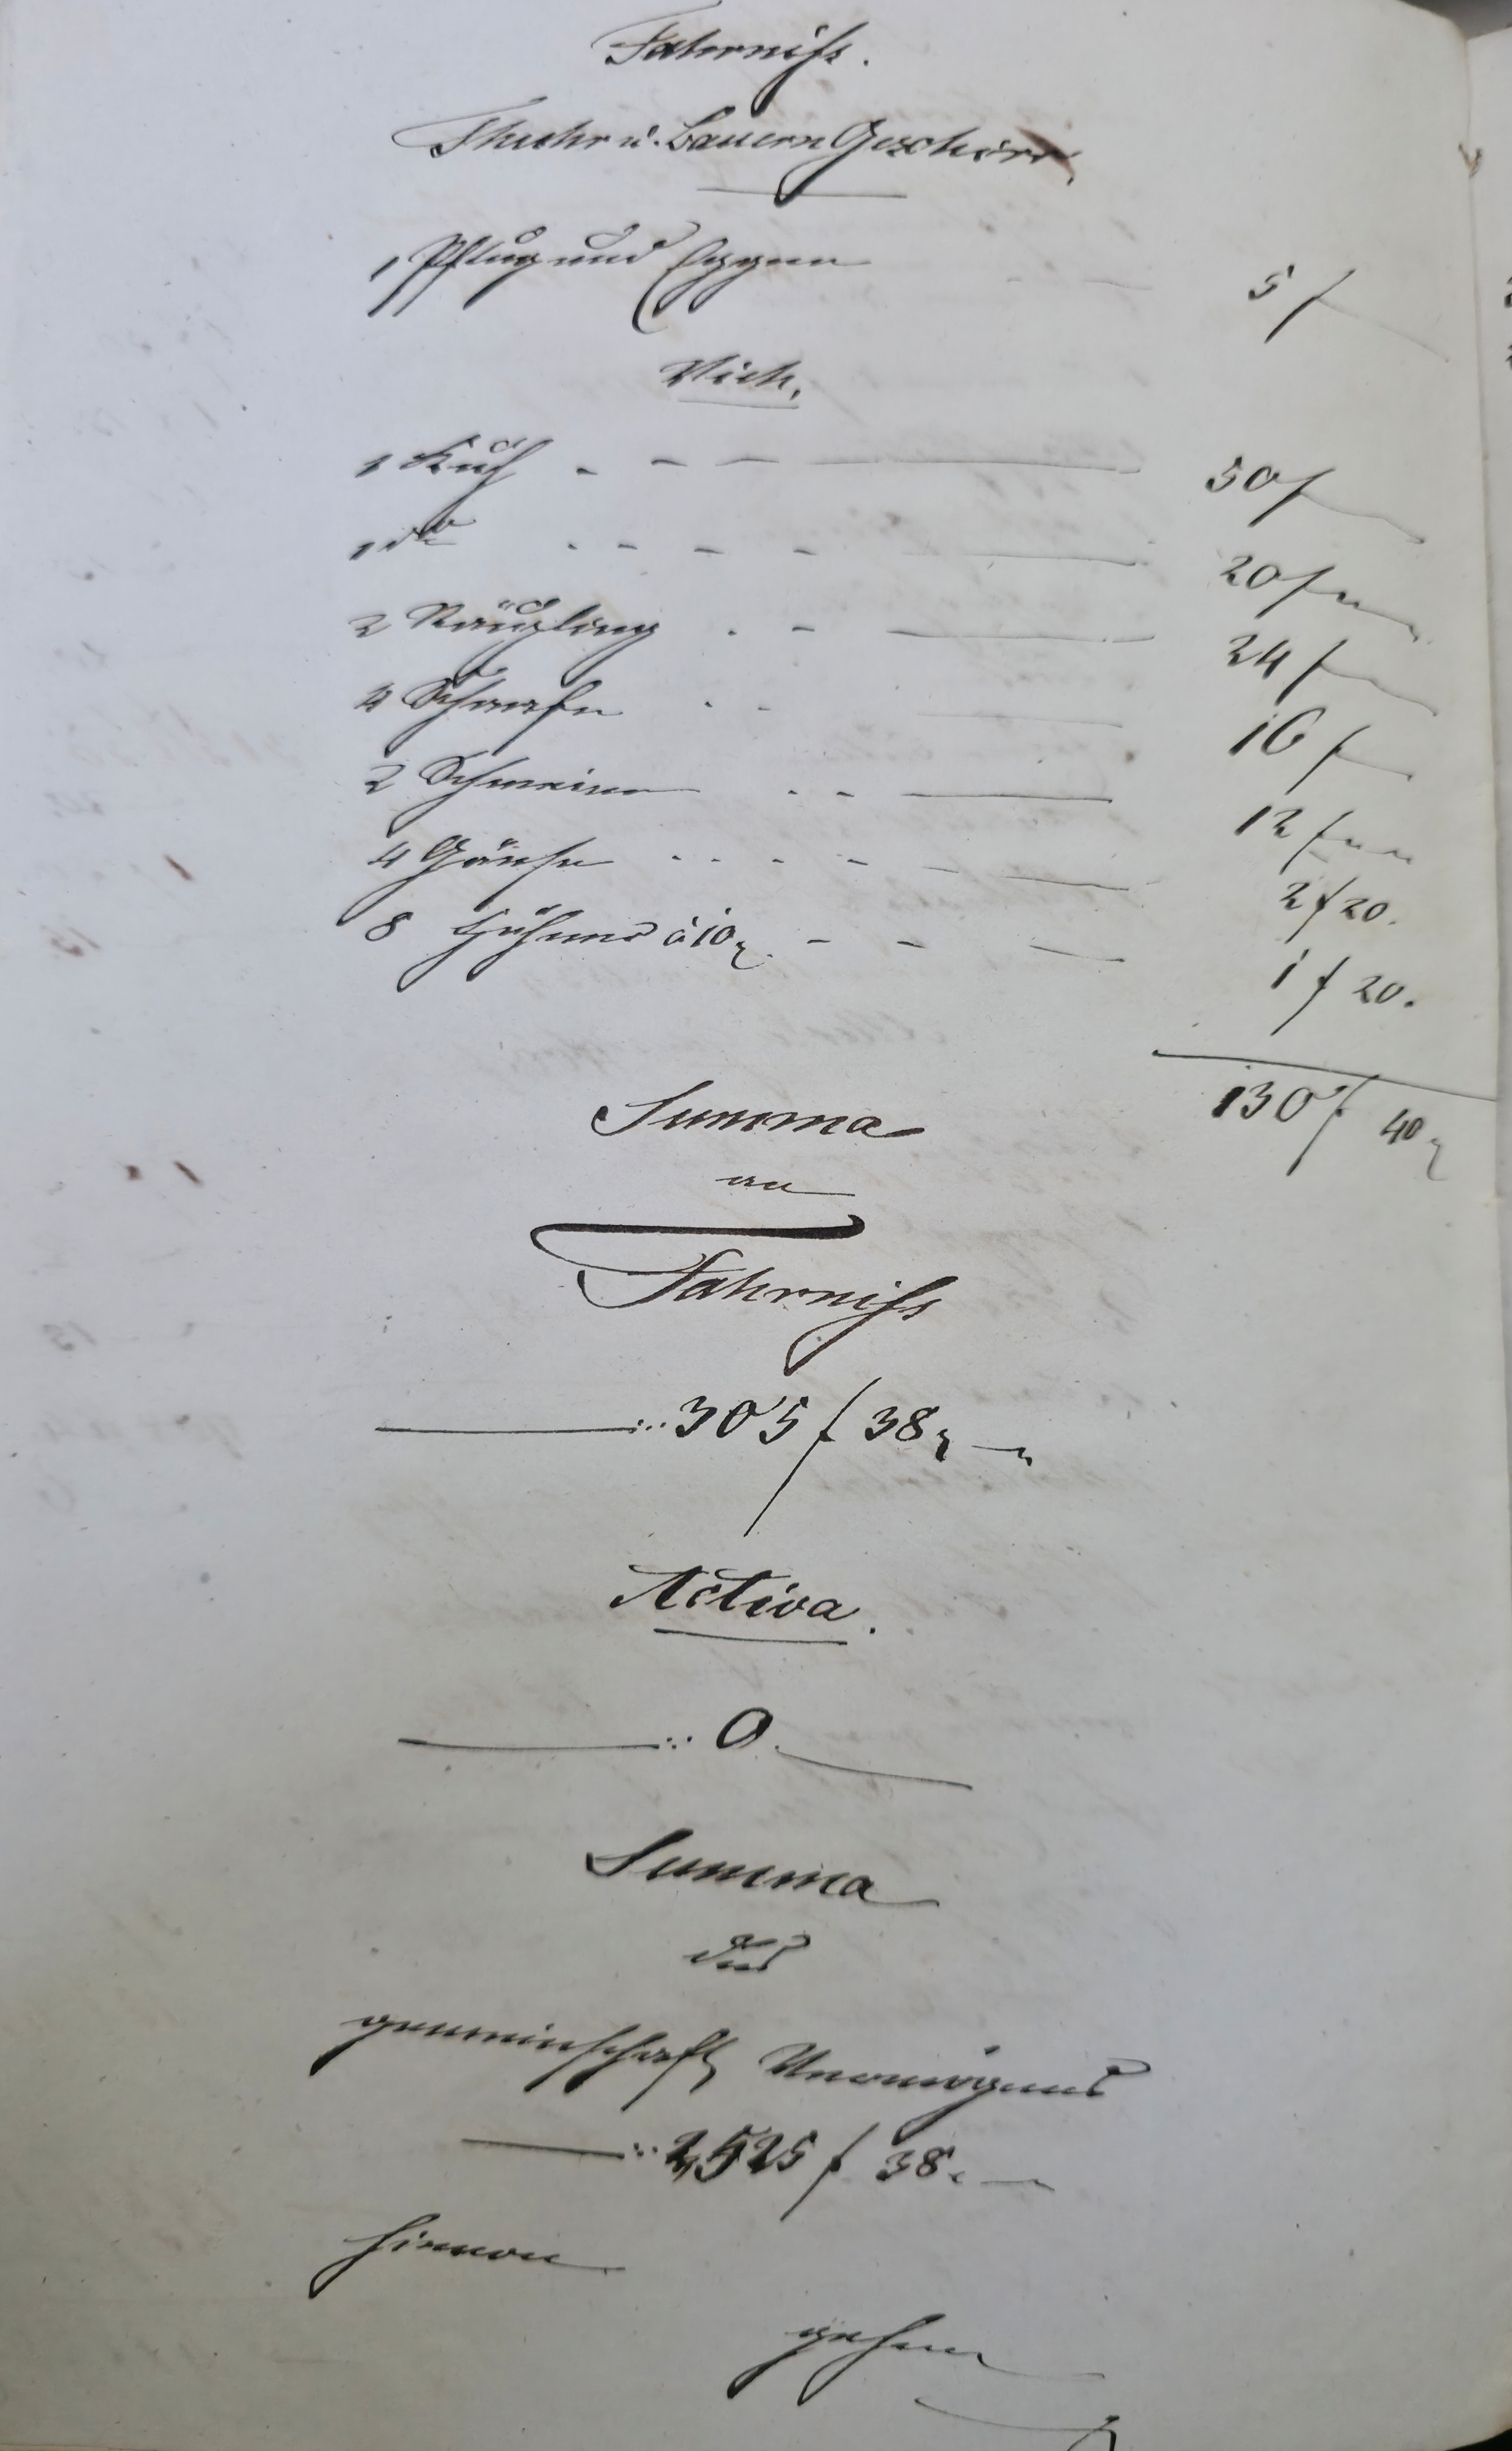 Fahrniss.
Fhuhr u. Bauern Geschirr,
1 Pflug und Eggen - - 5 f
Vieh,
1 Kuh - - - 50 f
1 do - - - - 20 f
2 - - 24 f
4 Schaafe - - 16 f
2 Schweine - - 12 f
4 Gänse - - - - 2 f 20.
8 Hühner à 10 x. - - - 1 f 20.
130 f 40 x
Summa
an
Fahrniss
305 f 38 x
Activa.
0.
Summa
des
gemeinschaftl. Vermögens
2,525 f 38 x
hievon
gehen